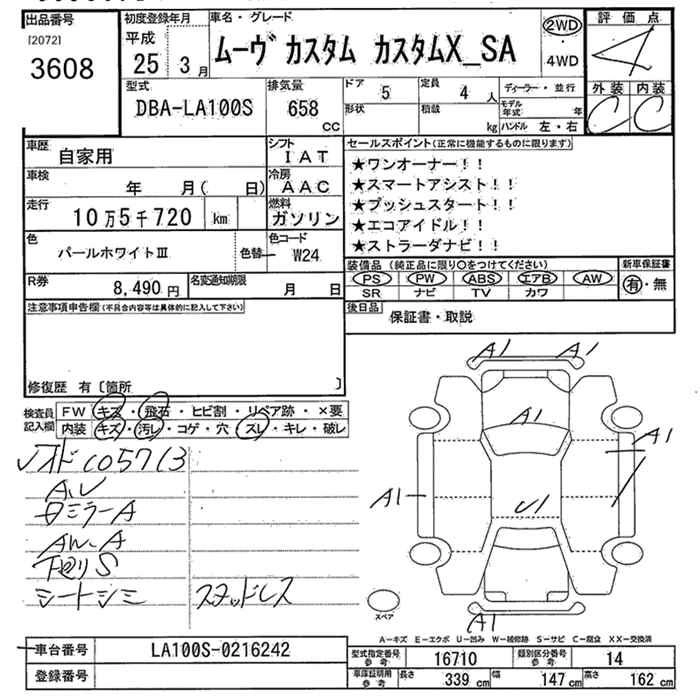 出品番号
[2072]
3608
初度登録年月
平成
25 3月
車名・グレード
ムーヴ カスタム カスタムX_SA
2WD
・
4WD
評価点
4
外装 内装
C C
型式
DBA-LA100S
排気量
658
cc
ドア
5
定員
4 人
形状
積載
kg
ディーラー・並行
モデル年式 年
ハンドル 左・右
車歴
自家用
シフト
IAT
車検
年 月( 日)
冷房
AAC
走行
10万5千720 km
燃料
ガソリン
色
パールホワイトⅢ
色替
色コード
W24
R券
8,490円
名変通知期限
月 日
セールスポイント(正常に機能するものに限ります)
★ワンオーナー!!
★スマートアシスト!!
★プッシュスタート!!
★エコアイドル!!
★ストラーダナビ!!
装備品(純正品に限り○をつけてください)
PS PW ABS エアB AW
SR ナビ TV カワ
新車保証書
有・無
後日品
保証書・取説
注意事項申告欄(不具合内容等は具体的に記入して下さい)
修復歴 有〔箇所 〕
検査員
記入欄
FW キズ・飛石・ヒビ割・リペア跡・×要
内装 キズ・汚レ・コゲ・穴・スレ・キレ・破レ
A.U
ロミラーA
AW.A
下廻りS
シートシミ
スタッドレス
A1 A1
A1
A1
A1
U1
A1
スペア
A-キズ E-エクボ U-凹み W-補修跡 S-サビ C-腐食 XX-交換済
車台番号
LA100S-0216242
登録番号
型式指定番号
参考
16710
類別区分番号
参考
14
車庫証明用
参考
長さ 339 cm 幅 147 cm 高さ 162 cm